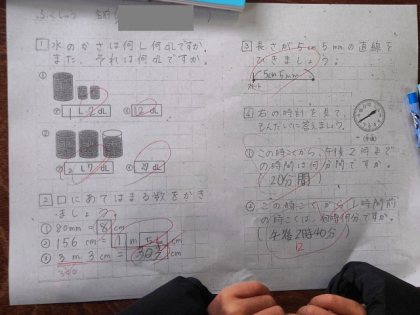 ふくしゅう
1 水のかさは何L何dLですか。
また、それは何dLですか。
①
1L2dL
12dL
②
dL
dL
2 □にあてはまる数をかき
ましょう。
① 80mm = 8 cm
② 156 cm = 1 m 56 cm
③ 3 m 3 cm = 303 cm
300
3 長さが5cm5mmの直線を
ひきましょう。
5cm5mm
4 右の時計を見て、
もんだいに答えましょう。
(午後)
① この時こくから、午後2時まで
の時間は何分間ですか。
(20分間)
② この時こくから1時間前
の時こくは、何時何分ですか。
(午後2時40分)
12